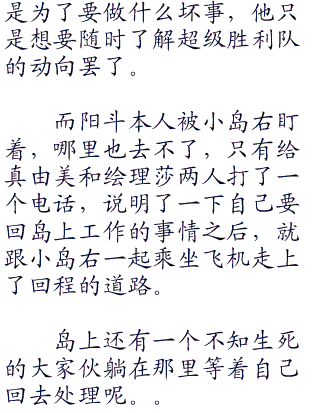 是为了要做什么坏事，他只
是想要随时了解超级胜利队
的动向罢了。
而阳斗本人被小岛右盯
着，哪里也去不了，只有给
真由美和绘理莎两人打了一
个电话，说明了一下自己要
回岛上工作的事情之后，就
跟小岛右一起乘坐飞机走上
了回程的道路。
岛上还有一个不知生死
的大家伙躺在那里等着自己
回去处理呢。。